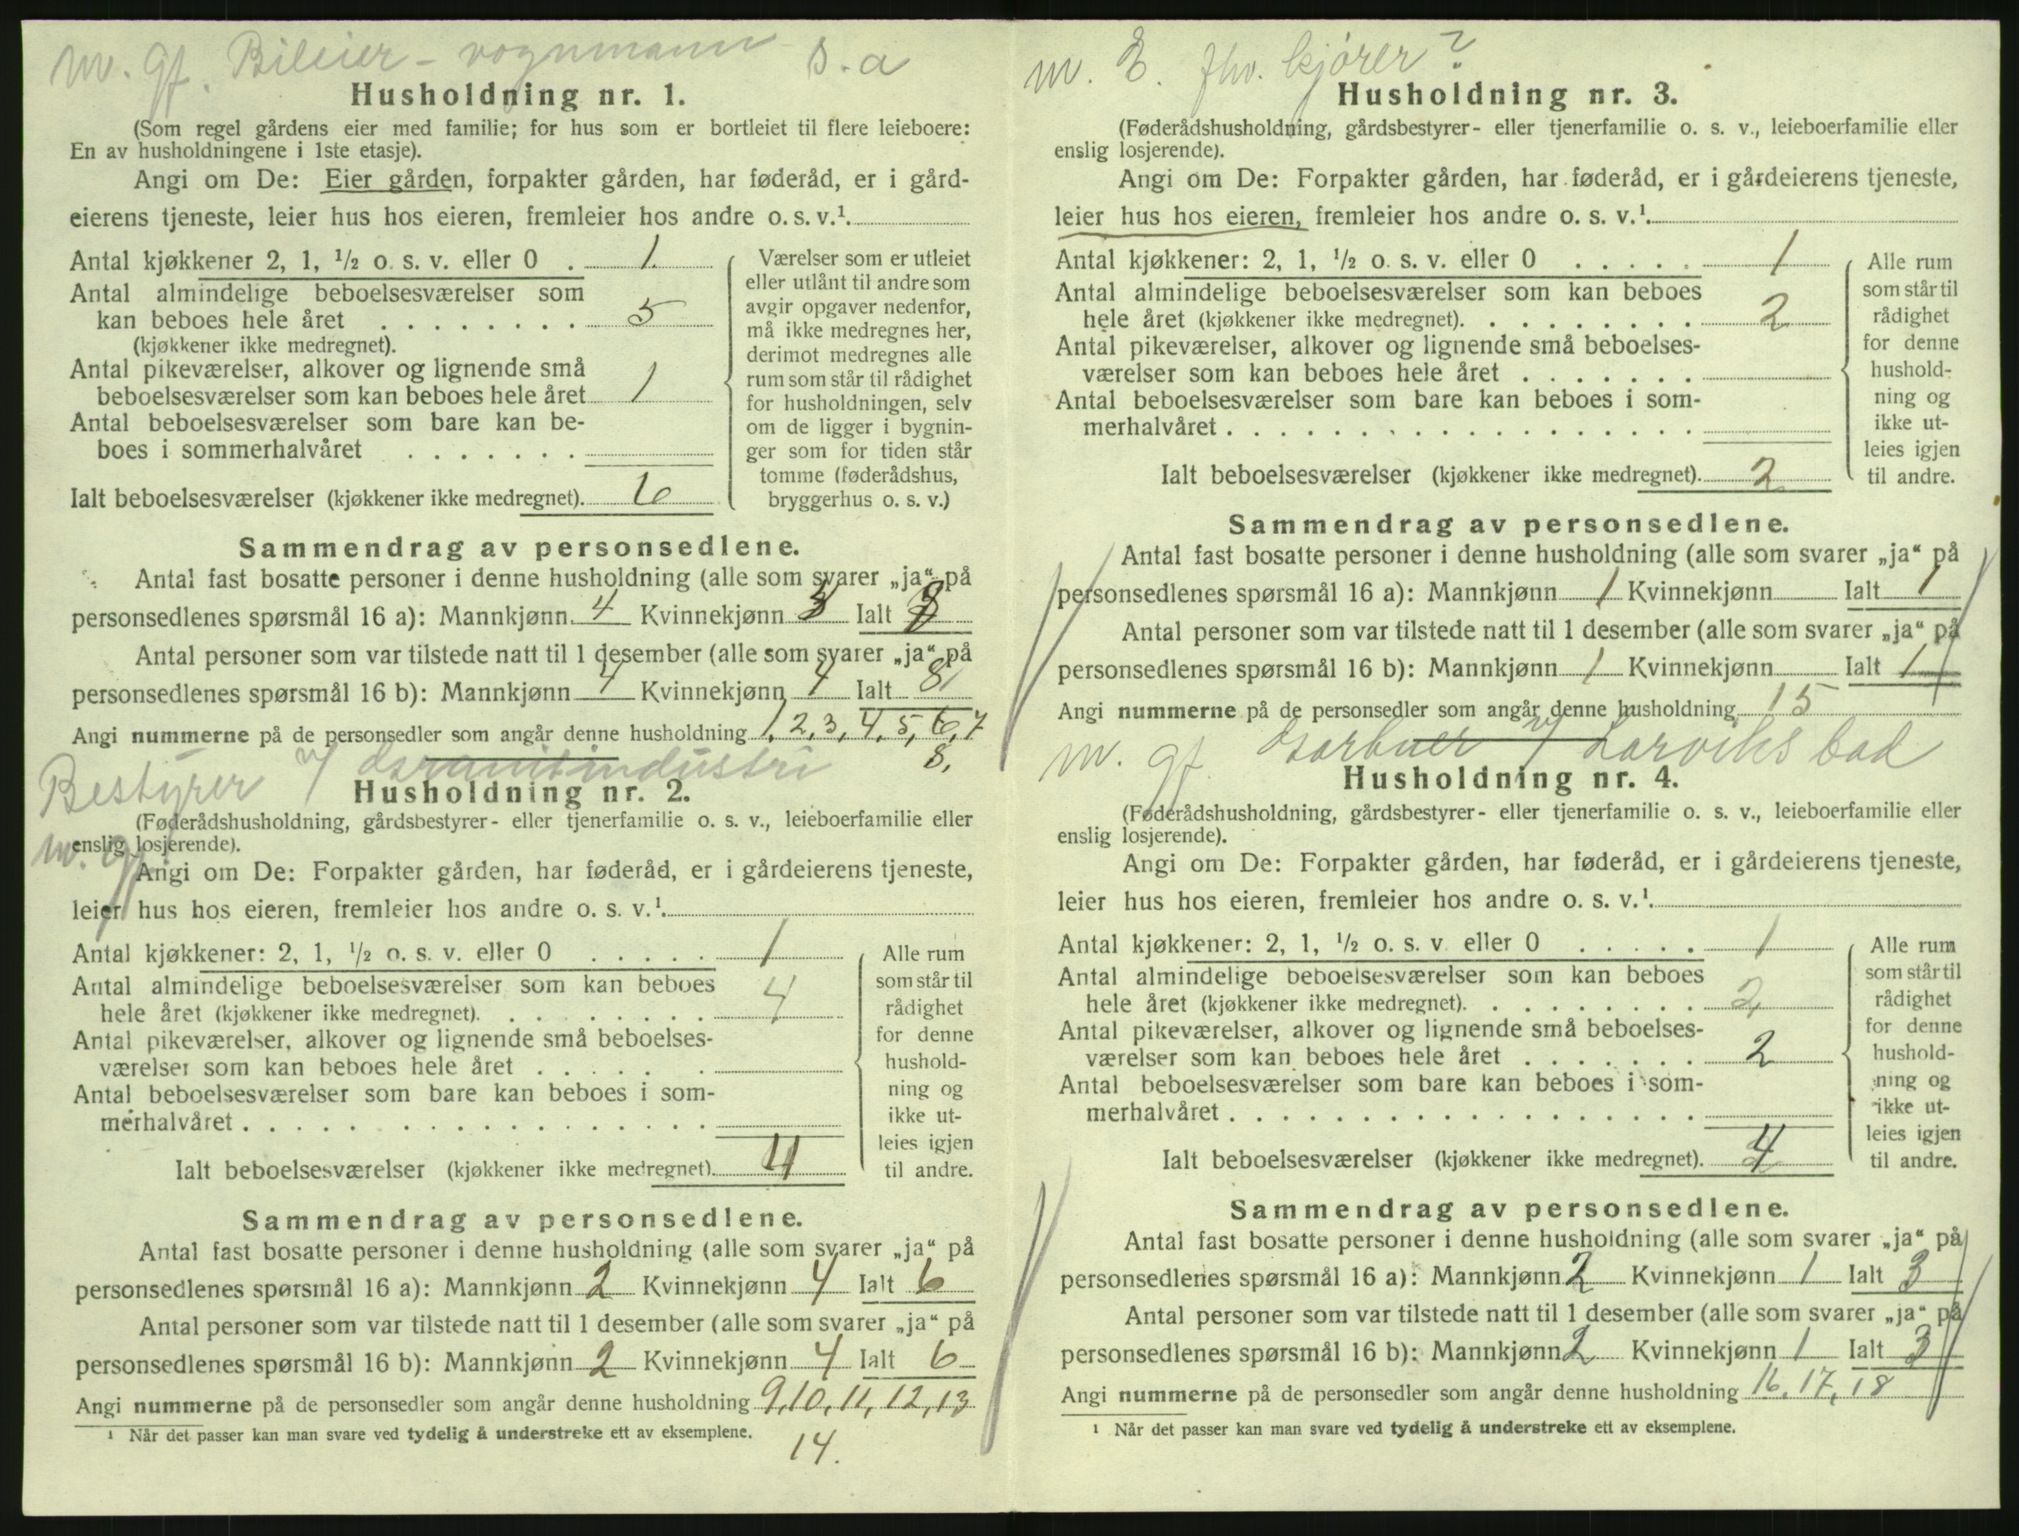 m. gf. Bileier - vognmann s.a
Husholdning nr. 1.
(Som regel gårdens eier med familie; for hus som er bortleiet til flere leieboere:
En av husholdningene i 1ste etasje).
Angi om De: Eier gården, forpakter gården, har føderåd, er i gård-
eierens tjeneste, leier hus hos eieren, fremleier hos andre o. s. v.¹.
Antal kjøkkener 2, 1, ½ o. s. v. eller 0 . 1
Antal almindelige beboelsesværelser som
kan beboes hele året . . . . . . . . 5
(kjøkkener ikke medregnet).
Antal pikeværelser, alkover og lignende små
beboelsesværelser som kan beboes hele året 1
Antal beboelsesværelser som bare kan be-
boes i sommerhalvåret . . . . . . .
Ialt beboelsesværelser (kjøkkener ikke medregnet). 6
Værelser som er utleiet
eller utlånt til andre som
avgir opgaver nedenfor,
må ikke medregnes her,
derimot medregnes alle
rum som står til rådighet
for husholdningen, selv
om de ligger i bygnin-
ger som for tiden står
tomme (føderådshus,
bryggerhus o. s. v.)
Sammendrag av personsedlene.
Antal fast bosatte personer i denne husholdning (alle som svarer „ja“ på
personsedlenes spørsmål 16 a): Mannkjønn 4 Kvinnekjønn Ialt
Antal personer som var tilstede natt til 1 desember (alle som svarer „ja“ på
personsedlenes spørsmål 16 b): Mannkjønn 4 Kvinnekjønn 4 Ialt 8
Angi nummerne på de personsedler som angår denne husholdning 1, 2, 3, 4, 5, 6, 7
8.
Bestyrer v/ industri
Husholdning nr. 2.
(Føderådshusholdning, gårdsbestyrer- eller tjenerfamilie o. s. v., leieboerfamilie eller
enslig losjerende).
m. gf.
Angi om De: Forpakter gården, har føderåd, er i gårdeierens tjeneste,
leier hus hos eieren, fremleier hos andre o. s. v.¹.
Antal kjøkkener: 2, 1, ½ o. s. v. eller 0 . . . . . 1
Antal almindelige beboelsesværelser som kan beboes
hele året (kjøkkener ikke medregnet). . . . . . . . . 4
Antal pikeværelser, alkover og lignende små beboelses-
værelser som kan beboes hele året . . . . . .
Antal beboelsesværelser som bare kan beboes i som-
merhalvåret . . . . . . . . . . . . . . . . .
Ialt beboelsesværelser (kjøkkener ikke medregnet). 4
Alle rum
som står til
rådighet
for denne
hushold-
ning og
ikke ut-
leies igjen
til andre.
Sammendrag av personsedlene.
Antal fast bosatte personer i denne husholdning (alle som svarer „ja“ på
personsedlenes spørsmål 16 a): Mannkjønn 2 Kvinnekjønn 4 Ialt 6
Antal personer som var tilstede natt til 1 desember (alle som svarer „ja“ på
personsedlenes spørsmål 16 b): Mannkjønn 2 Kvinnekjønn 4 Ialt 6
Angi nummerne på de personsedler som angår denne husholdning 9, 10, 11, 12, 13
¹ Når det passer kan man svare ved tydelig å understreke ett av eksemplene.
14.
m. E. fhv. kjører?
Husholdning nr. 3.
(Føderådshusholdning, gårdsbestyrer- eller tjenerfamilie o. s. v., leieboerfamilie eller
enslig losjerende).
Angi om De: Forpakter gården, har føderåd, er i gårdeierens tjeneste,
leier hus hos eieren, fremleier hos andre o. s. v.¹.
Antal kjøkkener: 2, 1, ½ o. s. v. eller 0 . . . . . 1
Antal almindelige beboelsesværelser som kan beboes
hele året (kjøkkener ikke medregnet). . . . . . . . . 2
Antal pikeværelser, alkover og lignende små beboelses-
værelser som kan beboes hele året . . . . . . .
Antal beboelsesværelser som bare kan beboes i som-
merhalvåret . . . . . . . . . . . . . . . . . .
Ialt beboelsesværelser (kjøkkener ikke medregnet). 2
Alle rum
som står til
rådighet
for denne
hushold-
ning og
ikke ut-
leies igjen
til andre.
Sammendrag av personsedlene.
Antal fast bosatte personer i denne husholdning (alle som svarer „ja“ på
personsedlenes spørsmål 16 a): Mannkjønn 1 Kvinnekjønn Ialt 1
Antal personer som var tilstede natt til 1 desember (alle som svarer „ja“ på
personsedlenes spørsmål 16 b): Mannkjønn 1 Kvinnekjønn Ialt 1
Angi nummerne på de personsedler som angår denne husholdning 15
m. gf. v/ Larviks bad
Husholdning nr. 4.
(Føderådshusholdning, gårdsbestyrer- eller tjenerfamilie o. s. v., leieboerfamilie eller
enslig losjerende).
Angi om De: Forpakter gården, har føderåd, er i gårdeierens tjeneste,
leier hus hos eieren, fremleier hos andre o. s. v.¹.
Antal kjøkkener: 2, 1, ½ o. s. v. eller 0 . . . . . 1
Antal almindelige beboelsesværelser som kan beboes
hele året (kjøkkener ikke medregnet). . . . . . . . . 2
Antal pikeværelser, alkover og lignende små beboelses-
værelser som kan beboes hele året . . . . . . . 2
Antal beboelsesværelser som bare kan beboes i som-
merhalvåret . . . . . . . . . . . . . . . . . .
Ialt beboelsesværelser (kjøkkener ikke medregnet). 4
Alle rum
som står til
rådighet
for denne
hushold-
ning og
ikke ut-
leies igjen
til andre.
Sammendrag av personsedlene.
Antal fast bosatte personer i denne husholdning (alle som svarer „ja“ på
personsedlenes spørsmål 16 a): Mannkjønn 2 Kvinnekjønn 1 Ialt 3
Antal personer som var tilstede natt til 1 desember (alle som svarer „ja“ på
personsedlenes spørsmål 16 b): Mannkjønn 2 Kvinnekjønn 1 Ialt 3
Angi nummerne på de personsedler som angår denne husholdning 16, 17, 18
¹ Når det passer kan man svare ved tydelig å understreke ett av eksemplene.